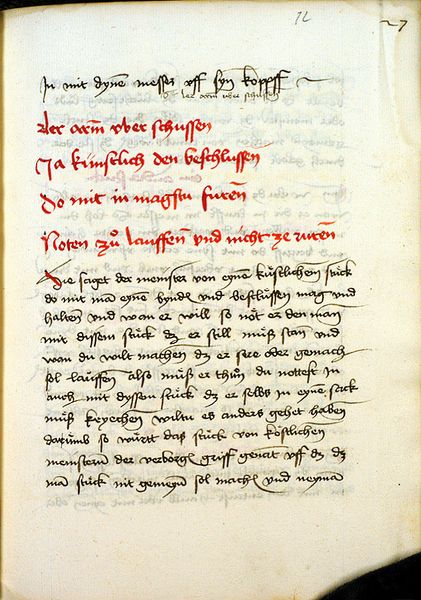 12
27
In mit dyne messer vff syn kopff
der arm vber schussen
Der arm vber schussen
Ja kunstlich den beschlussen
Do mit in magstu furen
Noten zů lauffen vnd nicht ze rüren
Hie saget der meinster von eyne kůstlichen stuck
do mit mā eyne bynde vnd beslüssen mag vnd
halten vnd wan er will so nöt er den man
mit dissem stück dz er still můß stan vnd
wan du wilt machen dz er sere oder gemach
sol lauffen also můß er thun du nottest in
auch mit dyssen stuck dz er selbs in eyne sack
můß keyechen wiltu es anders gehet haben
darumb so württ daß stück von kostlichen
meinstern der verborge griff genāt vff dz dz
mā stuck nit gemeyn sol mache vnd neymā